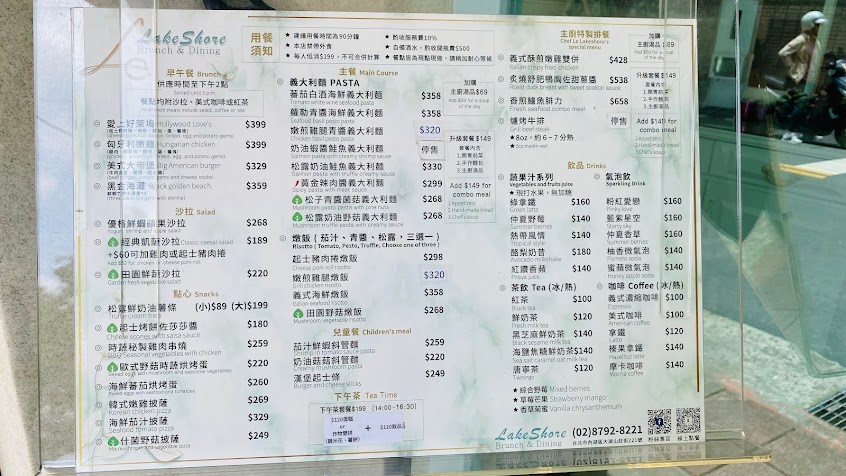 LakeShore
Brunch & Dining
用餐須知
★ 建議用餐時間為90分鐘
★ 本店禁帶外食
★ 每人低消$199，不可合併計算
★ 酌收服務費10%
★ 自備酒水，酌收開瓶費$500
★ 餐點皆為現點現做，請稍加耐心等候
早午餐 Brunch
供應時間至下午2點
Served until 2 p.m.
餐點均附沙拉、美式咖啡或紅茶
愛上好萊塢 Hollywood Love's $399
匈牙利嫩雞 Hungarian chicken $399
美式大亨堡 Big American burger $329
黑金海灘 Black golden beach $359
沙拉 Salad
優格鮮蝦蘋果沙拉 $268
經典凱薩沙拉 Classic caesar salad $189
+$60可加雞肉或起士豬肉捲
田園鮮蔬沙拉 $220
Garden fresh vegetable salad
點心 Snacks
松露鮮奶油薯條 (小)$89 (大)$199
起士烤餅佐莎莎醬 $180
Cheese scones with salsa sauce
時蔬秘製雞肉串燒 $259
BBQ Seasonal vegetables with chicken
歐式野菇烘烤蛋 $220
海鮮番茄烘烤蛋 $260
韓式嫩雞披薩 $269
Korean chicken pizza
海鮮茄汁披薩 $329
Seafood tomato pizza
什菌野菇披薩 $249
主餐 Main Course
義大利麵 PASTA
蕃茄白酒海鮮義大利麵 $358
Tomato white wine seafood pasta
羅勒青醬海鮮義大利麵 $358
Seafood basil pesto pasta
嫩煎雞腿青醬義大利麵 $320
奶油蝦醬鮭魚義大利麵 停售
Salmon pasta with creamy shrimp sauce
松露奶油鮭魚義大利麵 $330
黃金辣肉醬義大利麵 $299
Spicy pasta with meat sauce
松子青醬菌菇義大利麵 $268
Mushroom pesto pasta with pine nuts
松露奶油野菇義大利麵 $268
燉飯 ( 茄汁、青醬、松露，三選一 )
Risotto ( Tomato, Pesto, Truffle, Choose one of three )
起士豬肉捲燉飯 $298
Cheese pork roll risotto
嫩煎雞腿燉飯 $320
Grill chicken risotto
義式海鮮燉飯 $358
Italian seafood risotto
田園野菇燉飯 $268
Mushroom vegetable risotto
兒童餐 Children's meal
茄汁鮮蝦斜管麵 $259
Shrimp in tomato sauce pasta
奶油菇菇斜管麵 $220
Creamy mushroom pasta
漢堡起士條 $249
Burger and cheese sticks
下午茶 Tea Time
下午茶套餐$199 (14:00-16:30)
$120蛋糕
or
炸物雙拼
+
$120飲品
加購
主廚湯品$69
Add $69 for a soup of the day
升級套餐$149
套餐內含
1.開胃前菜
2.手作麵包
3.主廚湯品
Add $149 for combo meal
1.Appetizers
2.Hand-made bread
3.Chef's soup
主廚特製排餐
Chef Le Lakeshore's
special menu
義式酥煎嫩雞雙併 $428
Italian crispy fried chicken
炙燒舒肥鴨胸佐甜蔥醬 $538
Roast duck breast with sweet scallion sauce
香煎鱸魚排力 $658
Fresh seafood combo meal
爐烤牛排 停售
Grill beef steak
★ 8oz，約 6~7分熟
加購
主廚湯品$69
升級套餐 $149
套餐內含
1.開胃前菜
2.手作麵包
3.主廚湯品
Add $149 for
combo meal
飲品 Drinks
蔬果汁系列
Vegetables and fruits juice
★ 現打水果，無加糖
綠拿鐵 $160
Green latte
仲夏野莓 $140
Summer berries
熱帶風情 $140
Tropical style
酪梨奶昔 $180
Avocado milkshake
紅鑽香蘋 $140
氣泡飲
Sparkling Drink
粉紅愛戀 $160
Pinky love
藍紫星空 $160
Starry sky
仲夏香草 $160
柚香微氣泡 $140
Pomelo soda
蜜蘋微氣泡 $140
Honey apple soda
茶飲 Tea (冰/熱)
紅茶 $100
Black tea
鮮奶茶 $120
Fresh milk tea
黑芝麻鮮奶茶 $140
Black sesame milk tea
海鹽焦糖鮮奶茶 $140
Sea salt caramel oat milk tea
唐寧茶 $120
Twinings
★ 綜合野莓 Mixed berries
★ 草莓芒果 Strawberry mango
★ 香草菊蜜 Vanilla chrysanthemum
咖啡 Coffee (冰/熱)
義式濃縮咖啡 $100
Espresso
美式咖啡 $100
American coffee
拿鐵 $120
Latte
榛果拿鐵 $140
Hazelnut latte
摩卡咖啡 $140
Mocha coffee
LakeShore
Brunch & Dining
(02)8792-8221
台北市內湖區大湖山莊街221號
粉絲專頁
線上點餐